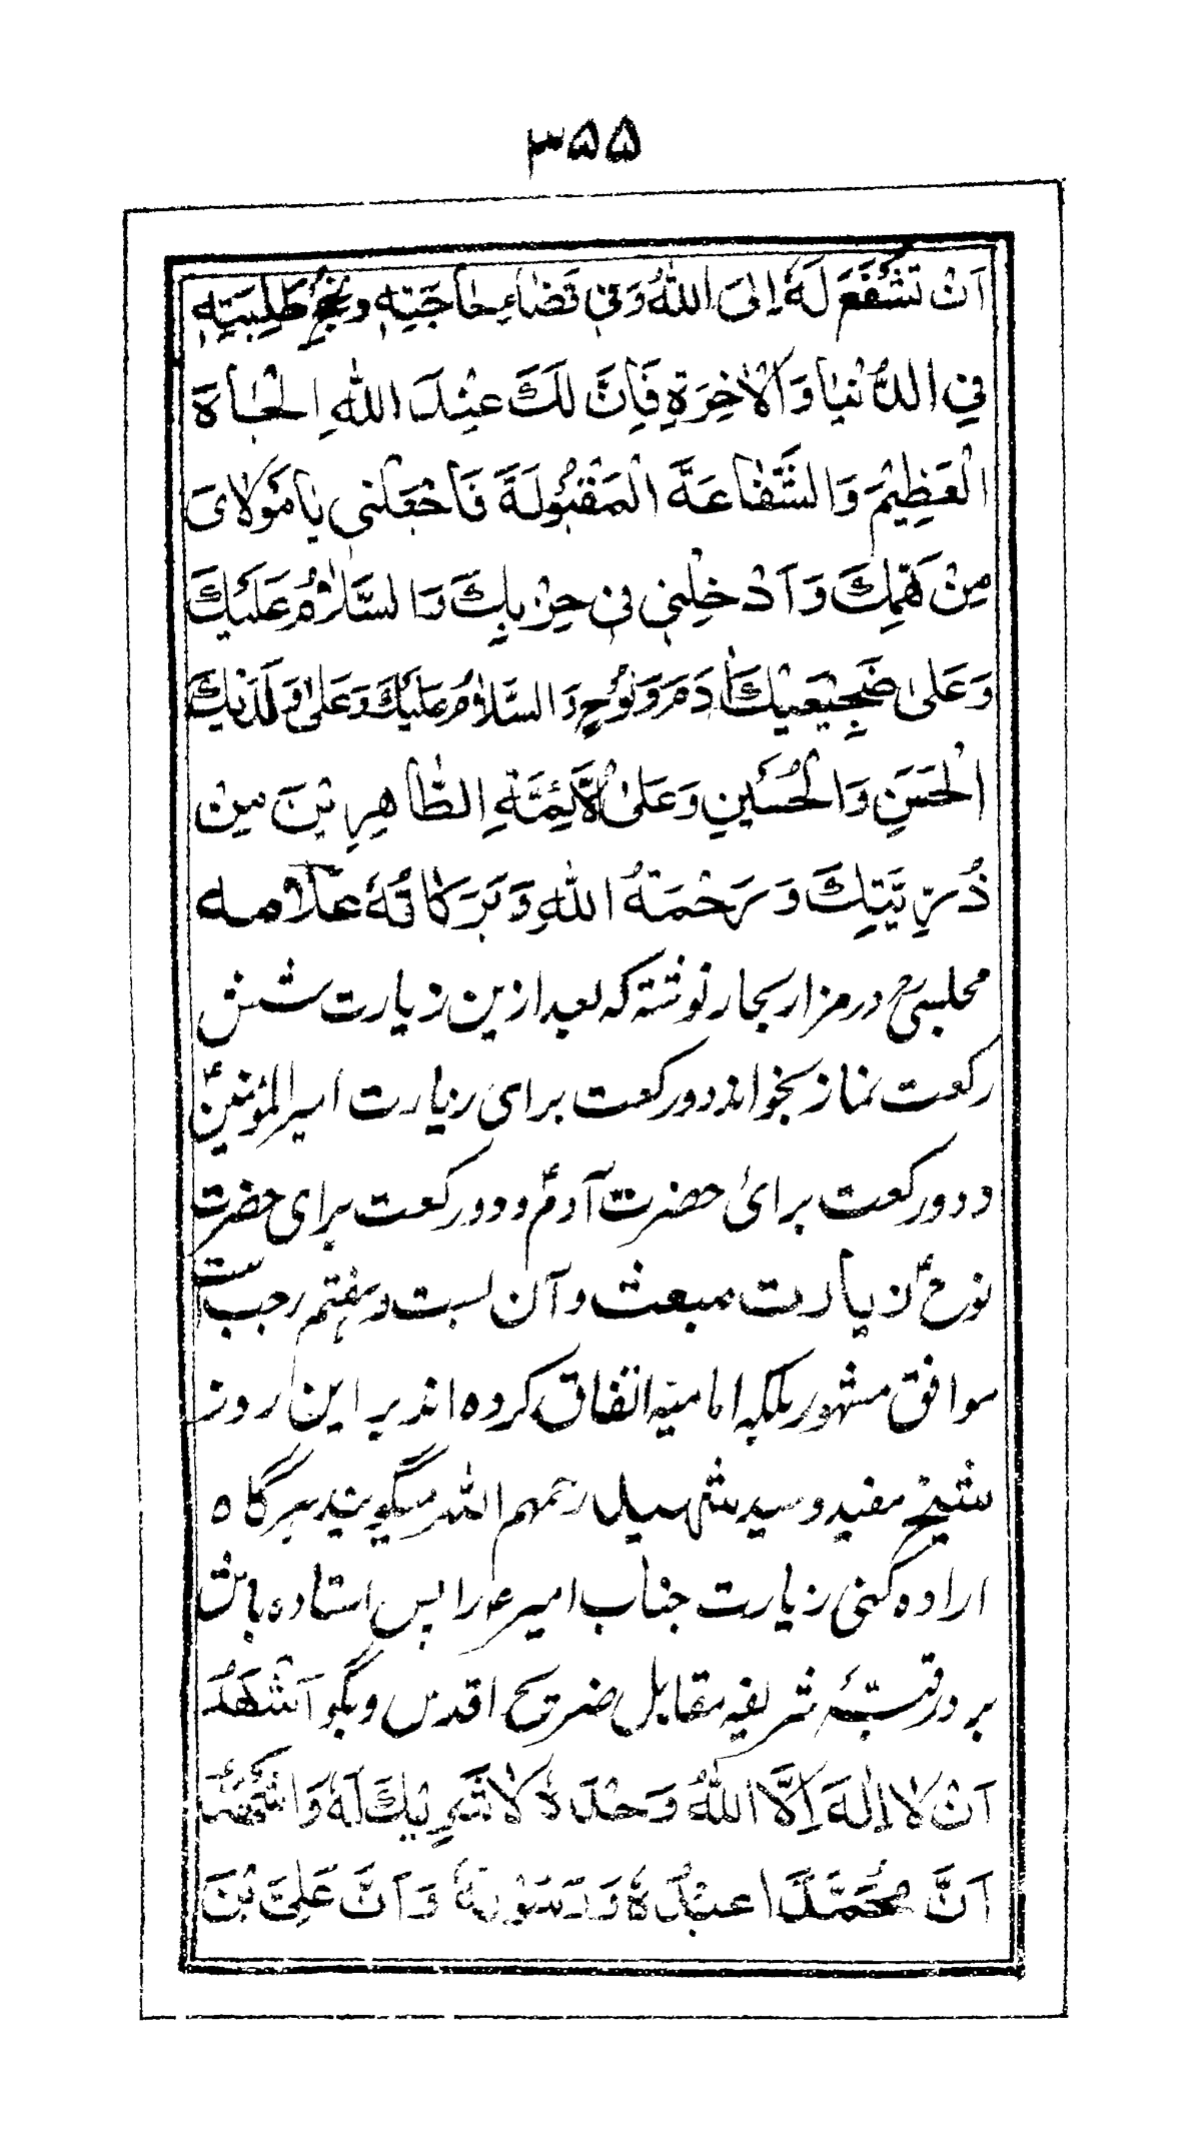 ۳۵۵
اَنْ تَشْفَعَ لَهٗ اِلَى اللهُ وَفِی قَضَاءِ حَاجَتِهٖ وَنُجْحِ طَلِبَتِهٖ
فِی الدُّنْیَا وَالْاٰخِرَةِ فَاِنَّ لَكَ عِنْدَ اللهِ الْجَاهَ
الْعَظِیْمَ وَالشَّفَاعَةَ الْمَقْبُولَةَ فَاجْعَلْنِی یَا مَوْلَایَ
مِنْ هَمِّكَ وَاَدْخِلْنِی فِی حِزْبِكَ وَالسَّلَامُ عَلَیْكَ
وَعَلٰی ضَجِیْعَیْكَ اٰدَمَ وَنُوْحٍ وَالسَّلَامُ عَلَیْكَ وَعَلٰی وَلَدَیْكَ
الْحَسَنِ وَالْحُسَیْنِ وَعَلَی الْاَئِمَّةِ الطَّاهِرِیْنَ مِنْ
ذُرِّیَّتِكَ وَرَحْمَةُ اللهِ وَبَرَكَاتُهٗ علامه
مجلسیؒ در مزار بحار نوشته که بعد ازین زیارت شش
رکعت نماز بخواند دو رکعت برای زیارت امیرالمؤمنینؑ
و دو رکعت برائ حضرت آدمؑ و دو رکعت برای حضرت
نوحؑ زیارت مبعث و آن بست و هفتم رجب ست
موافق مشهور بلکه امامیه اتفاق کرده اند بر این روز
شیخ مفید و سید شهید رحمهم الله میگویند هر گاه
اراده کنی زیارت جناب امیرؑ را پس استاده باش
بر در قبۂ شریفه مقابل ضریح اقدس و بگو اَشْهَدُ
اَنْ لَا اِلٰهَ اِلَّا اللهُ وَحْدَهٗ لَا شَرِیْكَ لَهٗ وَاَشْهَدُ
اَنَّ مُحَمَّدًا عَبْدُهٗ وَرَسُوْلُهٗ وَاَنَّ عَلِیَّ بْنَ